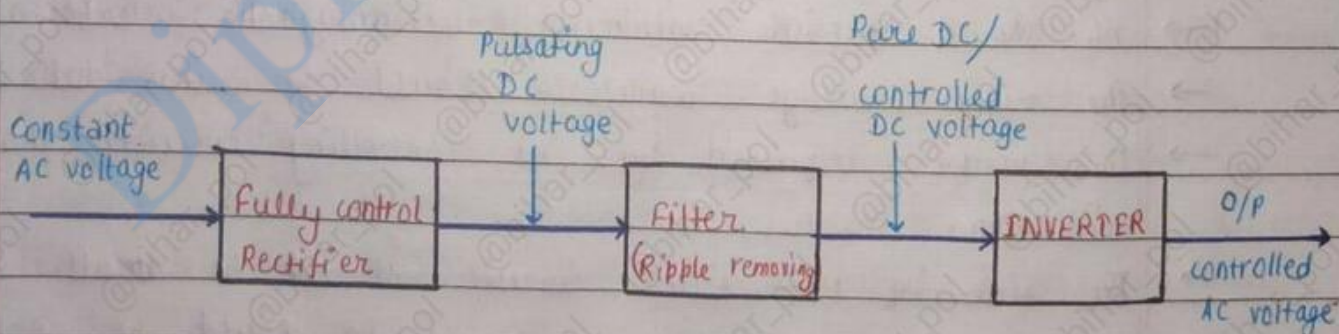 Constant
AC voltage
Fully control
Rectifier
Pulsating
DC
voltage
Filter
(Ripple removing
Pure DC/
controlled
DC voltage
INVERTER
O/P
controlled
AC voltage
Dip
@bihar_pol